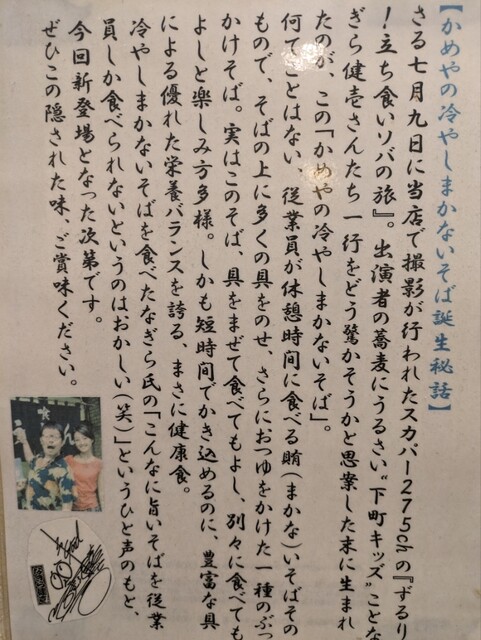 【かめやの冷やしまかないそば誕生秘話】
さる七月九日に当店で撮影が行われたスカパー275chの『ずるり
！立ち食いソバの旅』。出演者の蕎麦にうるさい“下町キッズ”ことな
ぎら健壱さんたち一行をどう驚かそうかと思案した末に生まれ
たのが、この「かめやの冷やしまかないそば」。
何てことはない、従業員が休憩時間に食べる賄（まかな）いそばその
もので、そばの上に多くの具をのせ、さらにおつゆをかけた一種のぶっ
かけそば。実はこのそば、具をまぜて食べてもよし、別々に食べても
よしと楽しみ方多様。しかも短時間でかき込めるのに、豊富な具
による優れた栄養バランスを誇る、まさに健康食。
冷やしまかないそばを食べたなぎら氏の「こんなに旨いそばを従業
員しか食べられないというのは、おかしい（笑）」というひと声のもと、
今回新登場となった次第です。
ぜひこの隠された味、ご賞味ください。